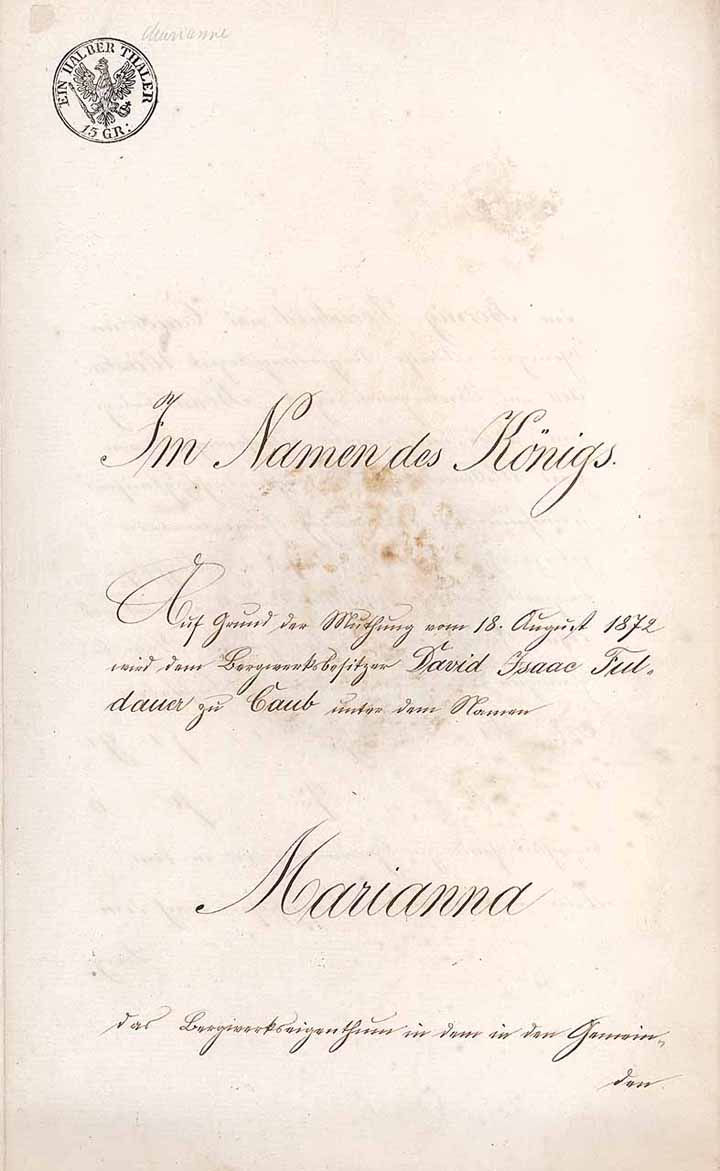 Marianne
EIN HALBER THALER
15 GR:
Im Namen des Königs.
Auf Grund der Muthung vom 18. August 1872
wird dem Bergwerksbesitzer David Isaac Ful-
dauer zu Caub unter dem Namen
Marianna
das Bergwerkseigenthum in dem in den Gemein-
den